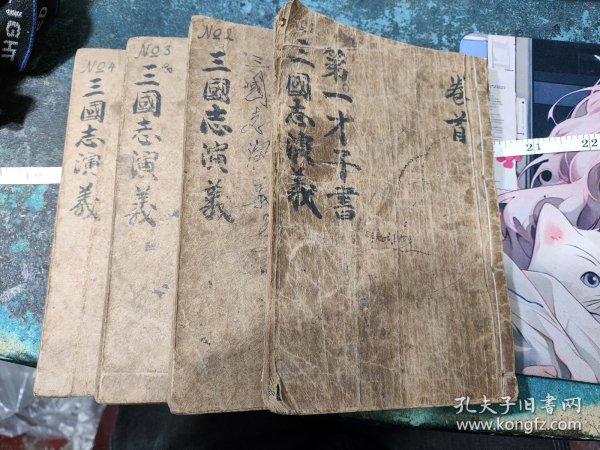 №4
三國志演义
№3
三國志演义
№2
三國志演义
三國志演义
第一才子書
卷首
21
22
孔夫子旧書网
www.kongfz.com